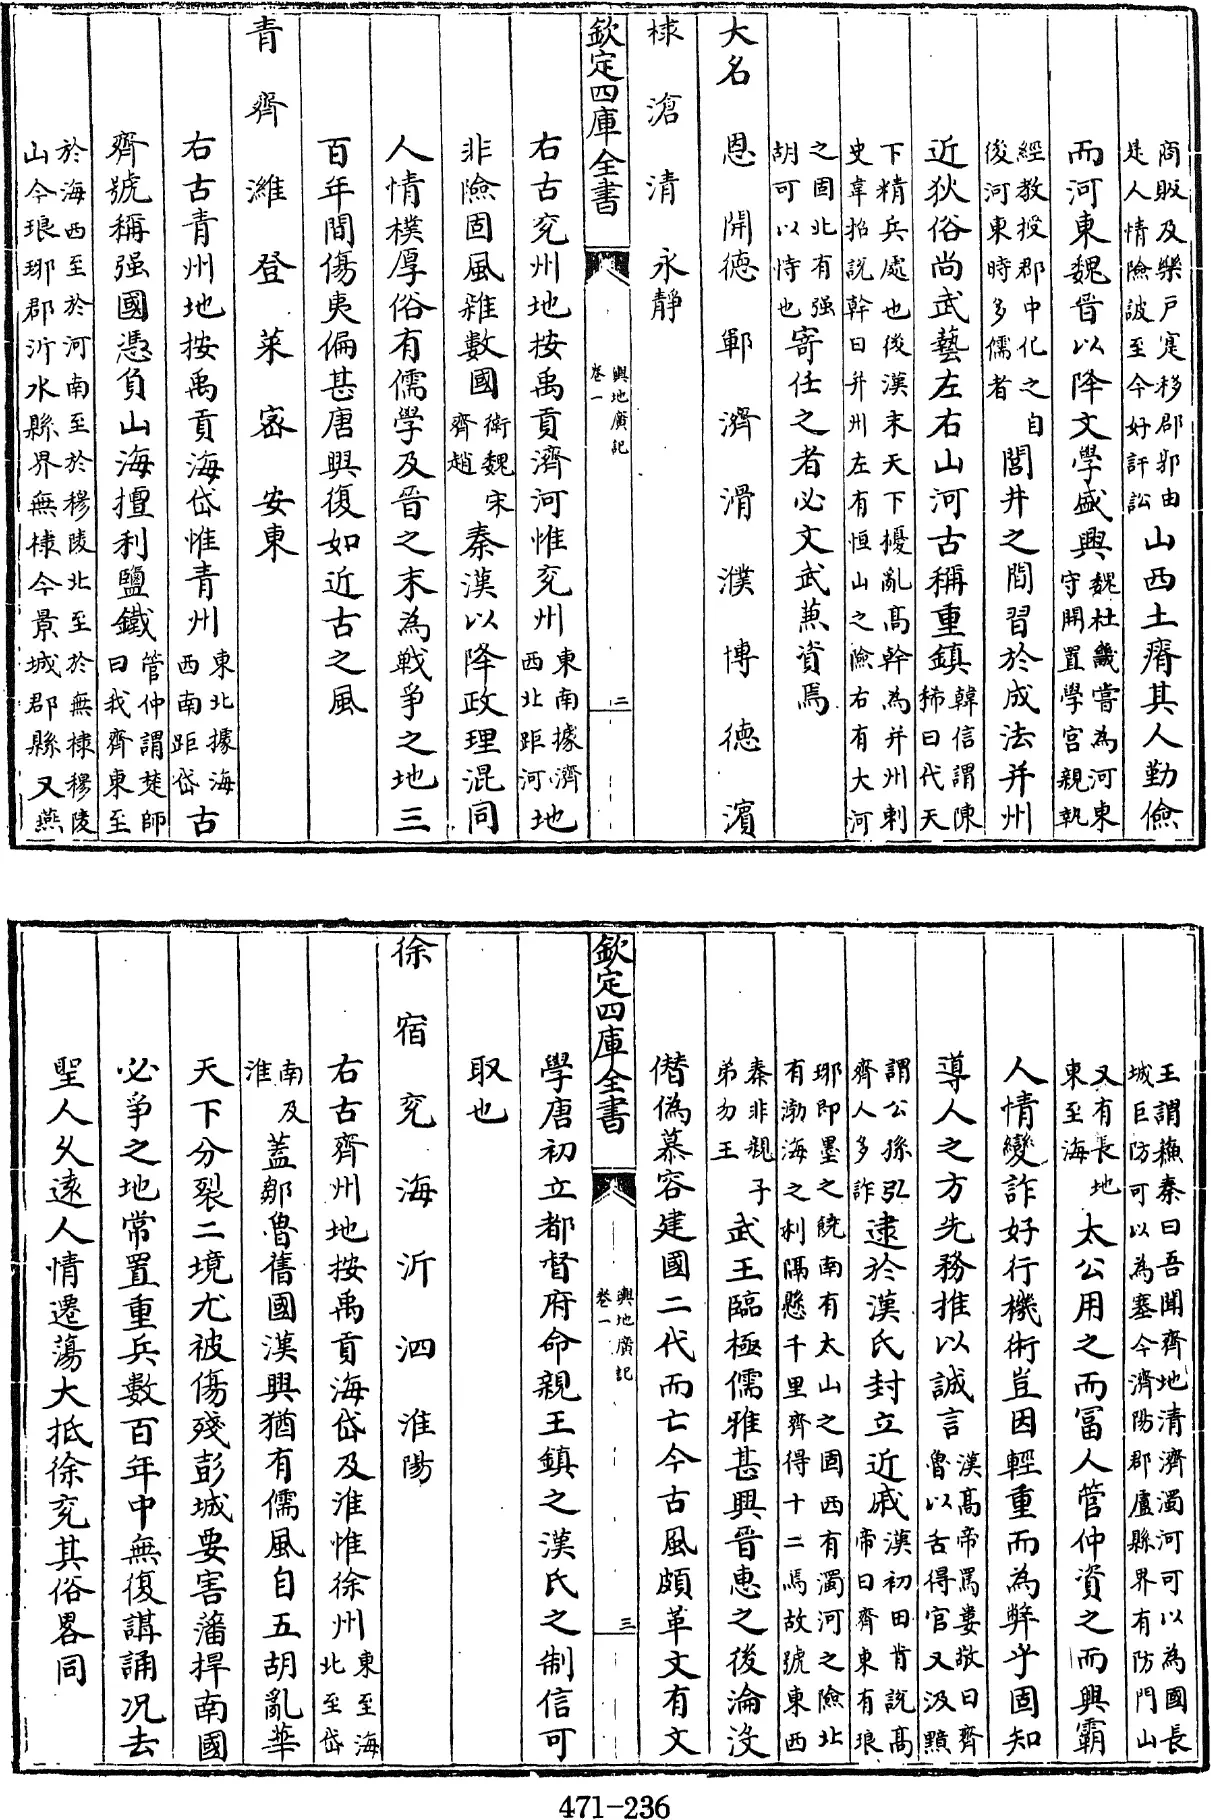 商販及樂戶寔移郡郭由是人情險詖至今好訐訟山西土瘠其人勤儉
而河東魏晉以降文學盛興魏杜畿嘗為河東守開置學官親執
經教授郡中化之自後河東時多儒者閭井之間習於成法并州
近狄俗尚武藝左右山河古稱重鎮韓信謂陳豨曰代天
下精兵處也後漢末天下擾亂高幹為并州刺史韋招說幹曰并州左有恒山之險右有大河
之固北有强胡可以恃也寄任之者必文武兼資焉
大名 恩 開德 鄆 濟 滑 濮 博 德 濱
棣 滄 清 永靜
欽定四庫全書 輿地廣記 卷一 二
右古兖州地按禹貢濟河惟兖州東南據濟西北距河地
非險固風雜數國衛魏宋齊趙秦漢以降政理混同
人情樸厚俗有儒學及晉之末為戰爭之地三
百年間傷夷偏甚唐興復如近古之風
青 齊 濰 登 萊 密 安東
右古青州地按禹貢海岱惟青州東北據海西南距岱古
齊號稱强國憑負山海擅利鹽鐵管仲謂楚師曰我齊東至
於海西至於河南至於穆陵北至於無棣穆陵山今琅琊郡沂水縣界無棣今景城郡縣又燕
王謂蘓秦曰吾聞齊地清濟濁河可以為國長城巨防可以為塞今濟陽郡盧縣界有防門山
又有長地東至海太公用之而冨人管仲資之而興霸
人情變詐好行機術豈因輕重而為弊乎固知
導人之方先務推以誠言漢高帝罵婁敬曰齊魯以舌得官又汲黯
謂公孫弘齊人多詐逮於漢氏封立近戚漢初田肯說高帝曰齊東有琅
琊即墨之饒南有太山之固西有濁河之險北有渤海之利隔懸千里齊得十二焉故號東西
秦非親子弟勿王武王臨極儒雅甚興晉惠之後淪没
僭偽慕容建國二代而亡今古風頗革文有文
學唐初立都督府命親王鎮之漢氏之制信可
取也
欽定四庫全書 輿地廣記 卷一 三
徐 宿 兖 海 沂 泗 淮陽
右古齊州地按禹貢海岱及淮惟徐州東至海北至岱
南及淮蓋鄒魯舊國漢興猶有儒風自五胡亂華
天下分裂二境尤被傷殘彭城要害藩捍南國
必爭之地常置重兵數百年中無復講誦况去
聖人乆逺人情遷蕩大抵徐兖其俗畧同
471-236